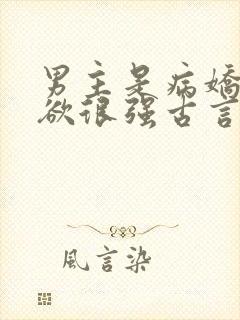 男主是病嬌
欲很强古言
風言染